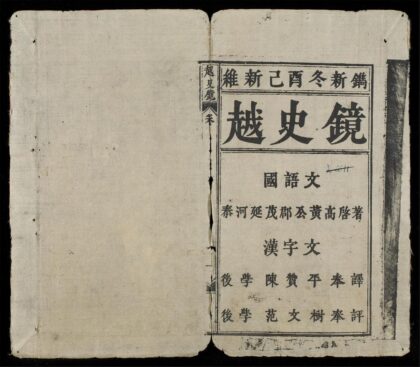 越史鏡
維新己酉冬新鐫
越史鏡
國語文
泰河延茂郡公黃高啓著
漢字文
後學陳贊平奉譯
後學范文樹奉評